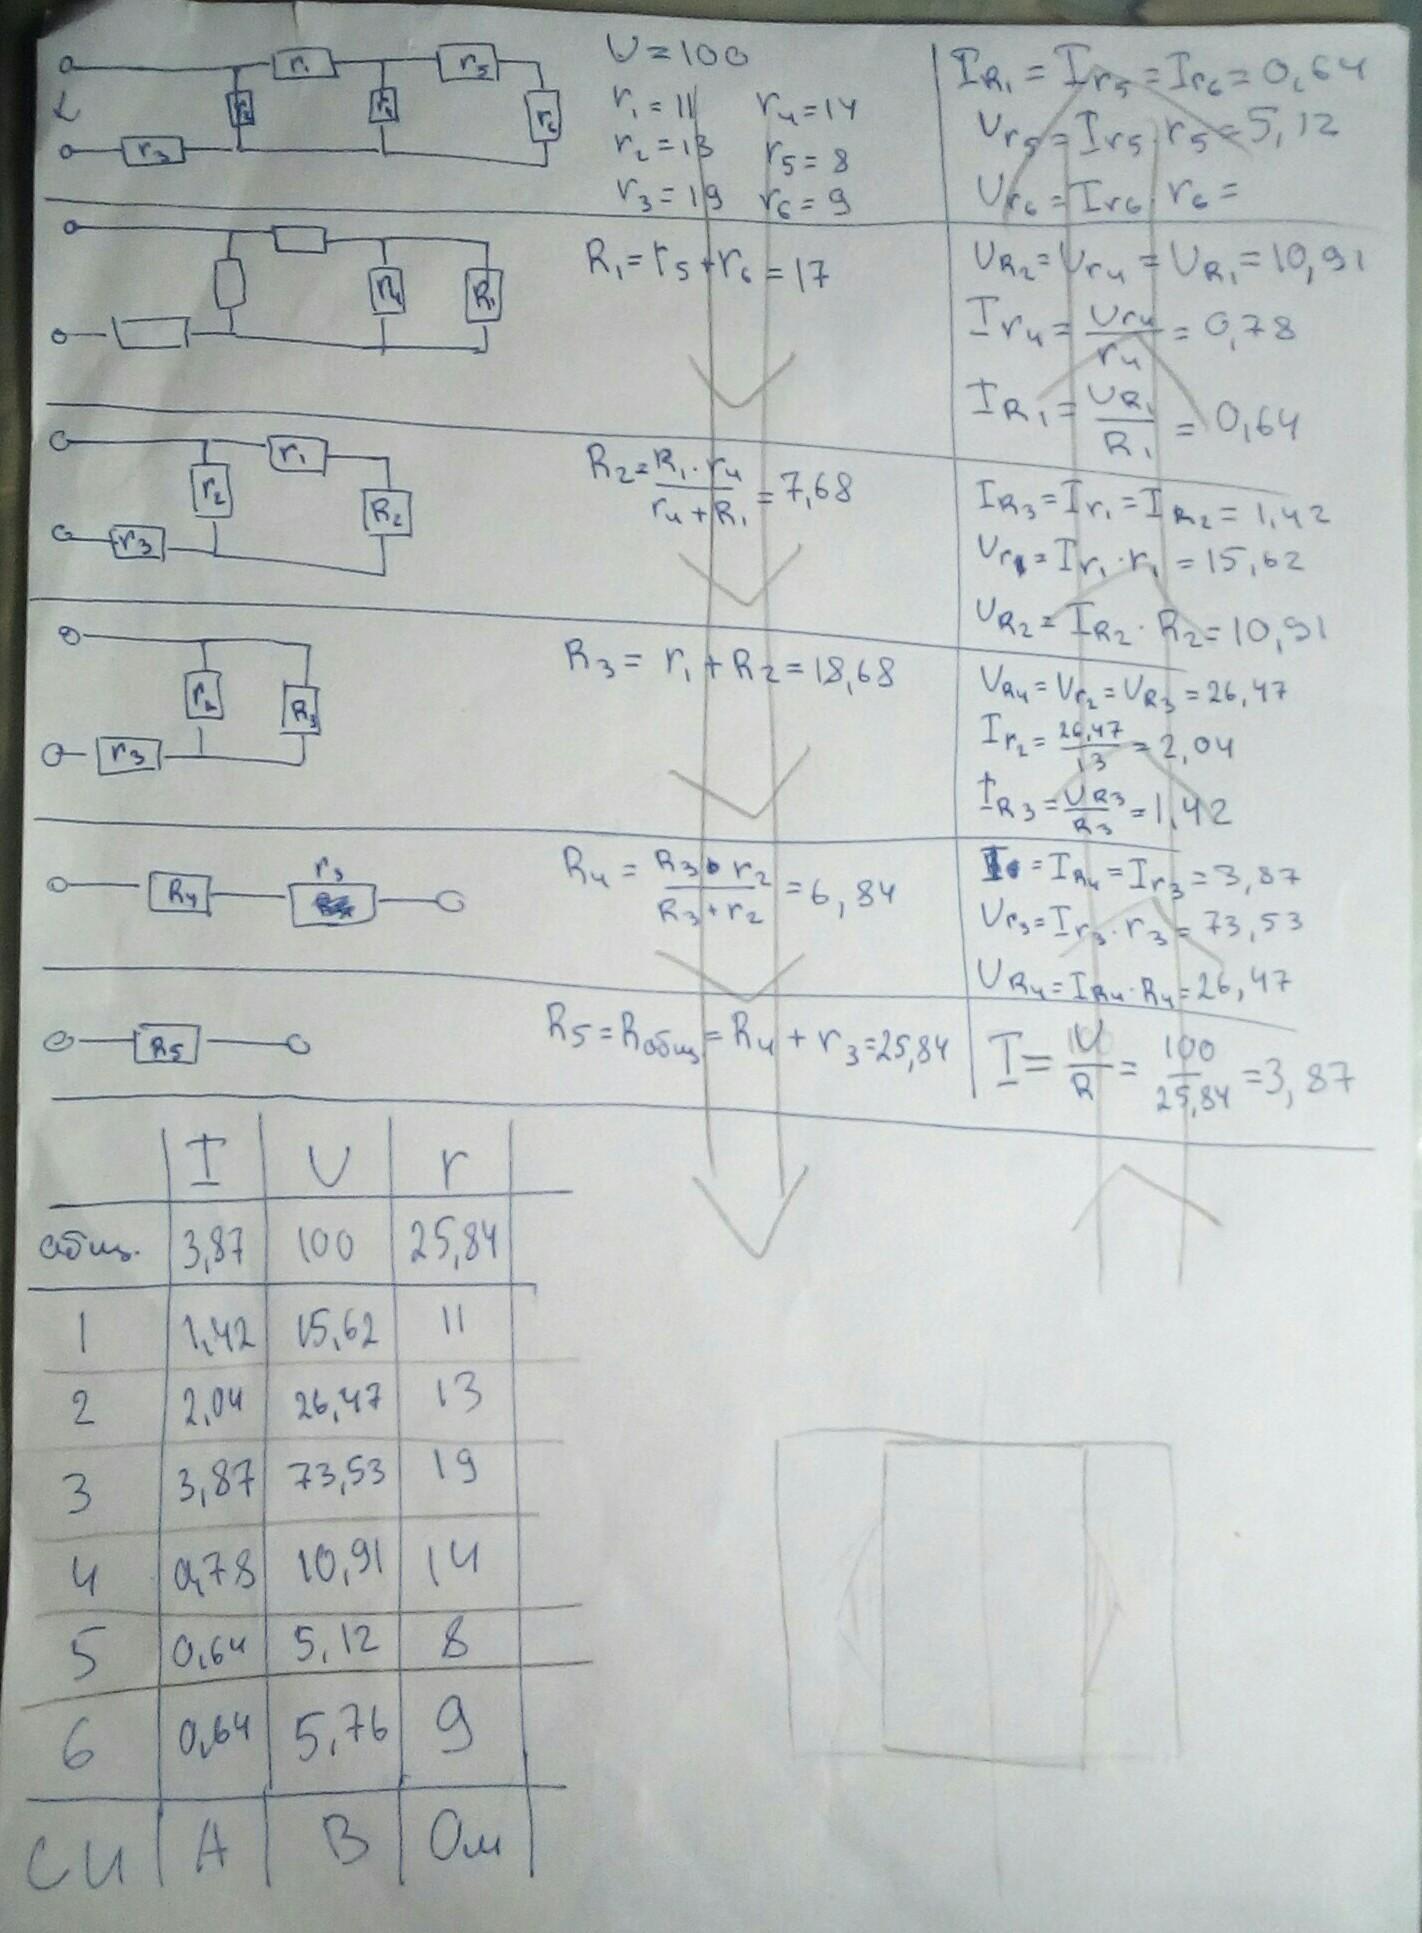 r₁ r₅
r₂ r₄ r₆
r₃
U = 100
r₁ = 11 r₄ = 14
r₂ = 13 r₅ = 8
r₃ = 19 r₆ = 9
I R₁ = I r₅ = I r₆ = 0,64
U r₅ = I r₅ · r₅ = 5,12
U r₆ = I r₆ · r₆ =
r₄ R₁
R₁ = r₅ + r₆ = 17
U R₂ = U r₄ = U R₁ = 10,91
I r₄ = U r₄ / r₄ = 0,78
I R₁ = U R₁ / R₁ = 0,64
r₁
r₂ R₂
r₃
R₂ = R₁ · r₄ / r₄ + R₁ = 7,68
I R₃ = I r₁ = I R₂ = 1,42
U r₁ = I r₁ · r₁ = 15,62
U R₂ = I R₂ · R₂ = 10,91
r₂ R₃
r₃
R₃ = r₁ + R₂ = 18,68
U R₄ = U r₂ = U R₃ = 26,47
I r₂ = 26,47 / 13 = 2,04
I R₃ = U R₃ / R₃ = 1,42
R₄ r₃
R₄ = R₃ · r₂ / R₃ + r₂ = 6,84
I = I R₄ = I r₃ = 3,87
U r₃ = I r₃ · r₃ = 73,53
U R₄ = I R₄ · R₄ = 26,47
R₅
R₅ = R общ = R₄ + r₃ = 25,84
I = U / R = 100 / 25,84 = 3,87
I U r
общ. 3,87 100 25,84
1 1,42 15,62 11
2 2,04 26,47 13
3 3,87 73,53 19
4 0,78 10,91 14
5 0,64 5,12 8
6 0,64 5,76 9
СИ А В Ом